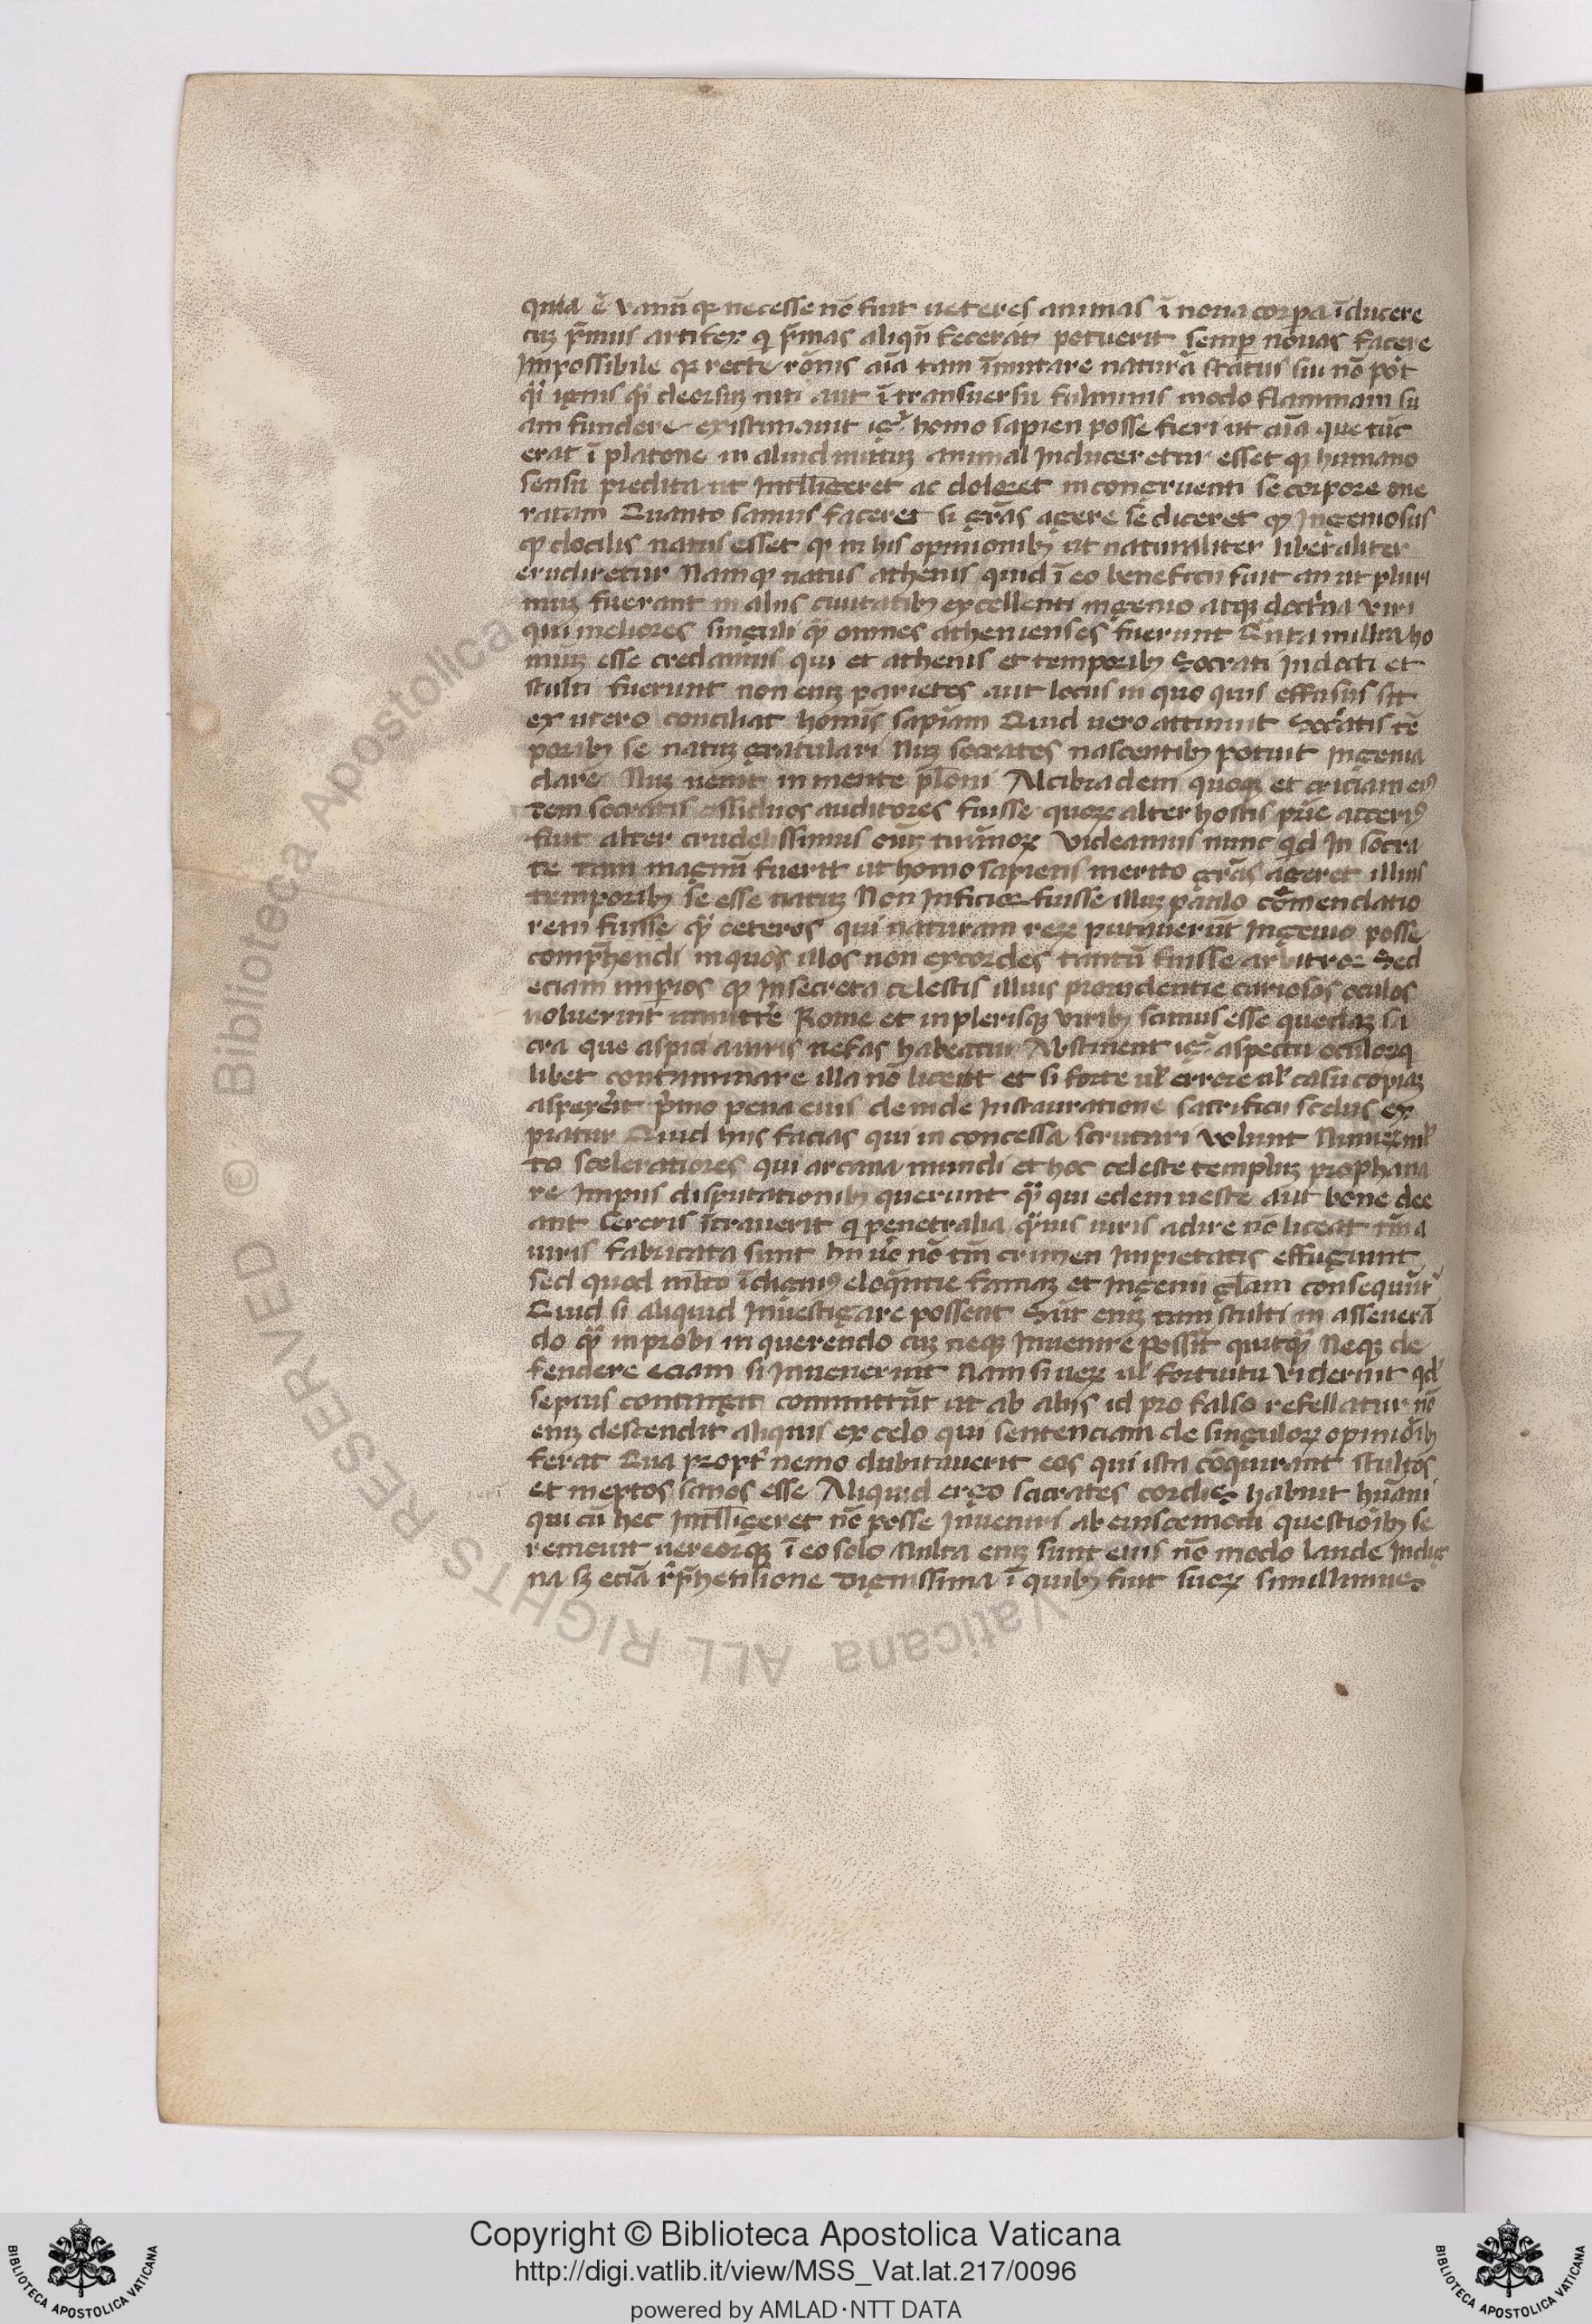 quia ē vanū qꝫ necesse nō fuit ueteres animas ī noua corpa īducere
cuꝫ p̄mus artifex q p̄mas aliqn̄ fecerat potuerit semꝑ nouas facere
Impossibile qꝫ recte rōnis aīa tam īmutare naturā status sui nō pōt
ignis deorsuꝫ niti aut ī transuersu fulminis modo flammam su
am fundere existimauit igr̄ homo sapien posse fieri ut aīa que tūc
erat ī platone in aliud mutuꝫ animal Induceretur esset qꝫ humano
sensu predita ut Intll̄igeret ac doleret incongruenti se corpore one
ratam Quanto sanius faceret si grās agere se diceret ꝙ Ingeniosus
ꝙ docilis natus esset ꝙ in his opinionibꝫ ut naturaliter liberaliter
erudiretur Nam ꝙ natus athenis quid ī eo beneficii fuit an ut pluri
muꝫ fuerant in aliis ciuitatibꝫ excellenti ingenio atqꝫ doctrīna viri
qui meliores singuli qꝫ omnes athenienses fuerunt Qn̄ta milia ho
mīuꝫ esse credamus qui et athenis et temporibꝫ Socrati Indocti et
stulti fuerunt non eniꝫ parietes aut locus in quo quis effusus sit
ex utero conciliat homīs sapīam Quid uero attinuit Socratis tē
poribꝫ se natuꝫ gratulari Nuꝫ socrates nascentibꝫ potuit Ingenia
dare Nuꝫ uenit in mente platoni Alcibiadem quoqꝫ et criciam eiꝰ
dem socratis assiduos auditores fuisse quoꝝ alter hostis prīe acerrīꝰ
fuit alter crudelissimus oīuꝫ tirānoꝝ Videamus nunc quid In socra
te tam magnū fuerit ut homo sapiens merito grās ageret illius
temporibꝫ se esse natuꝫ Non Inficior fuisse illuꝫ paulo cōmendatio
rem fuisse qꝫ ceteros qui naturam reꝝ putauerūt Ingenio posse
comp̄hendi in quos illos non excordes tantū fuisse arbitror Sed
eciam impios qꝫ In secreta celestis illius prouidentie curiosos oculos
uoluerint immittere Rome et in plerisqꝫ uribꝫ scimus esse quedaꝫ sa
cra que aspici a uiris nefas habeatur Abstinent igr̄ aspectu
libet contaminare illa nō liceat et si forte ul' errore ul' casu
aspexerit p̄mo pena eius deinde Instauratione sacrificii scelus ex
piatur Quid hiis facias qui in concessa scrutari volunt
to sceleratiores qui arcana mundi et hoc celeste templuꝫ prophana
re Impiis disputationibꝫ querunt qꝫ qui edem ueste aut bone dee
aut Cereris ītrauerit q penetralia qꝫuis uiris adire nō liceat tn̄ a
uiris fabricata sunt hii uo nō tm̄ crimen Impietatis effugiunt
sed quod mlto īdigniꝰ eloqntie famaꝫ et Ingenii glām consequūtr
Quid si aliquid Inuestigare possent Sūt eniꝫ tam stulti in asseuerā
do qꝫ inprobi in querendo cuꝫ neqꝫ Inuenire possīt quitqꝫ Neqꝫ de
fendere eciam si Inuenerint Nam si ueꝝ ul' fortuitu viderint qd'
sepius contingit committūt ut ab aliis id pro falso refellatur nō
eniꝫ descendit aliquis ex celo qui sentenciam de singuloꝝ opinionibꝫ
ferat Qua propt' nemo dubitauerit eos qui ista cōquirant stultos
et ineptos sanos esse Aliquid ergo sacrates cordis habuit hūani
qui cū hec Intll̄igeret nō posse Inueniri ab eiuscemodi questioībꝫ se
remouit uereorqꝫ ī eo solo Multa eniꝫ sunt eius nō modo laude Indig
na sꝫ eciā rp̄hensione dignissima ī quibꝫ fuit suoꝝ simillimus
Copyright © Biblioteca Apostolica Vaticana
http://digi.vatlib.it/view/MSS_Vat.lat.217/0096
powered by AMLAD·NTT DATA
BIBLIOTECA APOSTOLICA VATICANA
BIBLIOTECA APOSTOLICA VATICANA
© Biblioteca Apostolica Vaticana ALL RIGHTS RESERVED